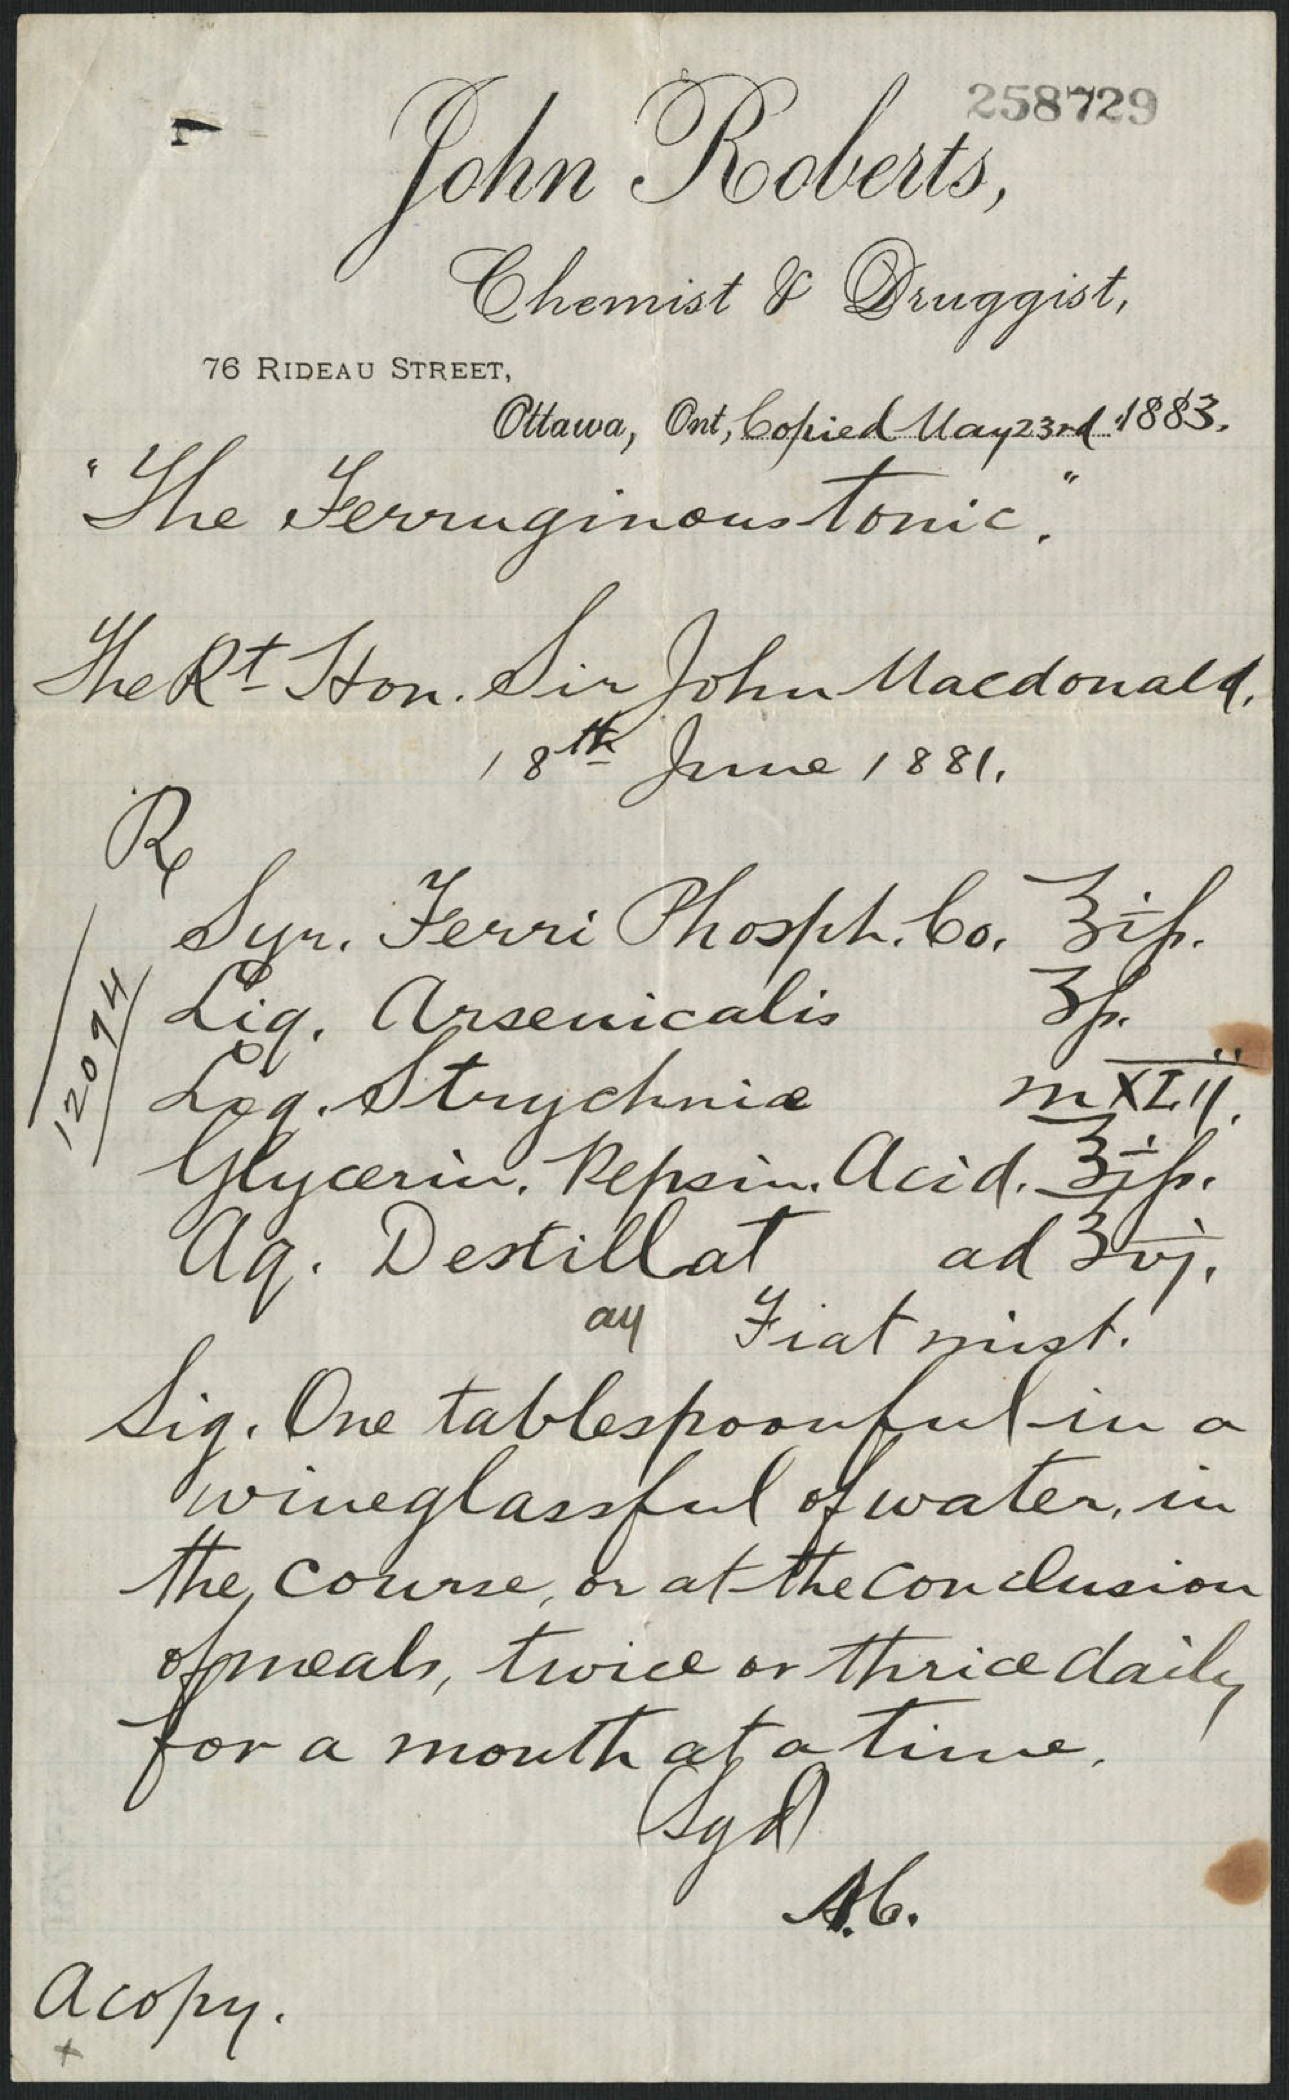 258729
John Roberts,
Chemist & Druggist,
76 RIDEAU STREET,
Ottawa, Ont, Copied May 23rd 1883.
"The Ferruginous Tonic."
The Rt Hon. Sir John Macdonald.
18th June 1881.
℞
Syr. Ferri Phosph. Co. ℥iß.
Liq. Arsenicalis ʒß.
Liq. Strychniæ ♏XLII.
Glycerin. Pepsin. Acid. ℥iß.
Aq. Destillat ad ℥vj.
Fiat mist.
12094
Sig. One tablespoonful in a
wineglassful of water, in
the course, or at the conclusion
of meals, twice or thrice daily
for a month at a time.
(Sgd)
A.C.
A copy.